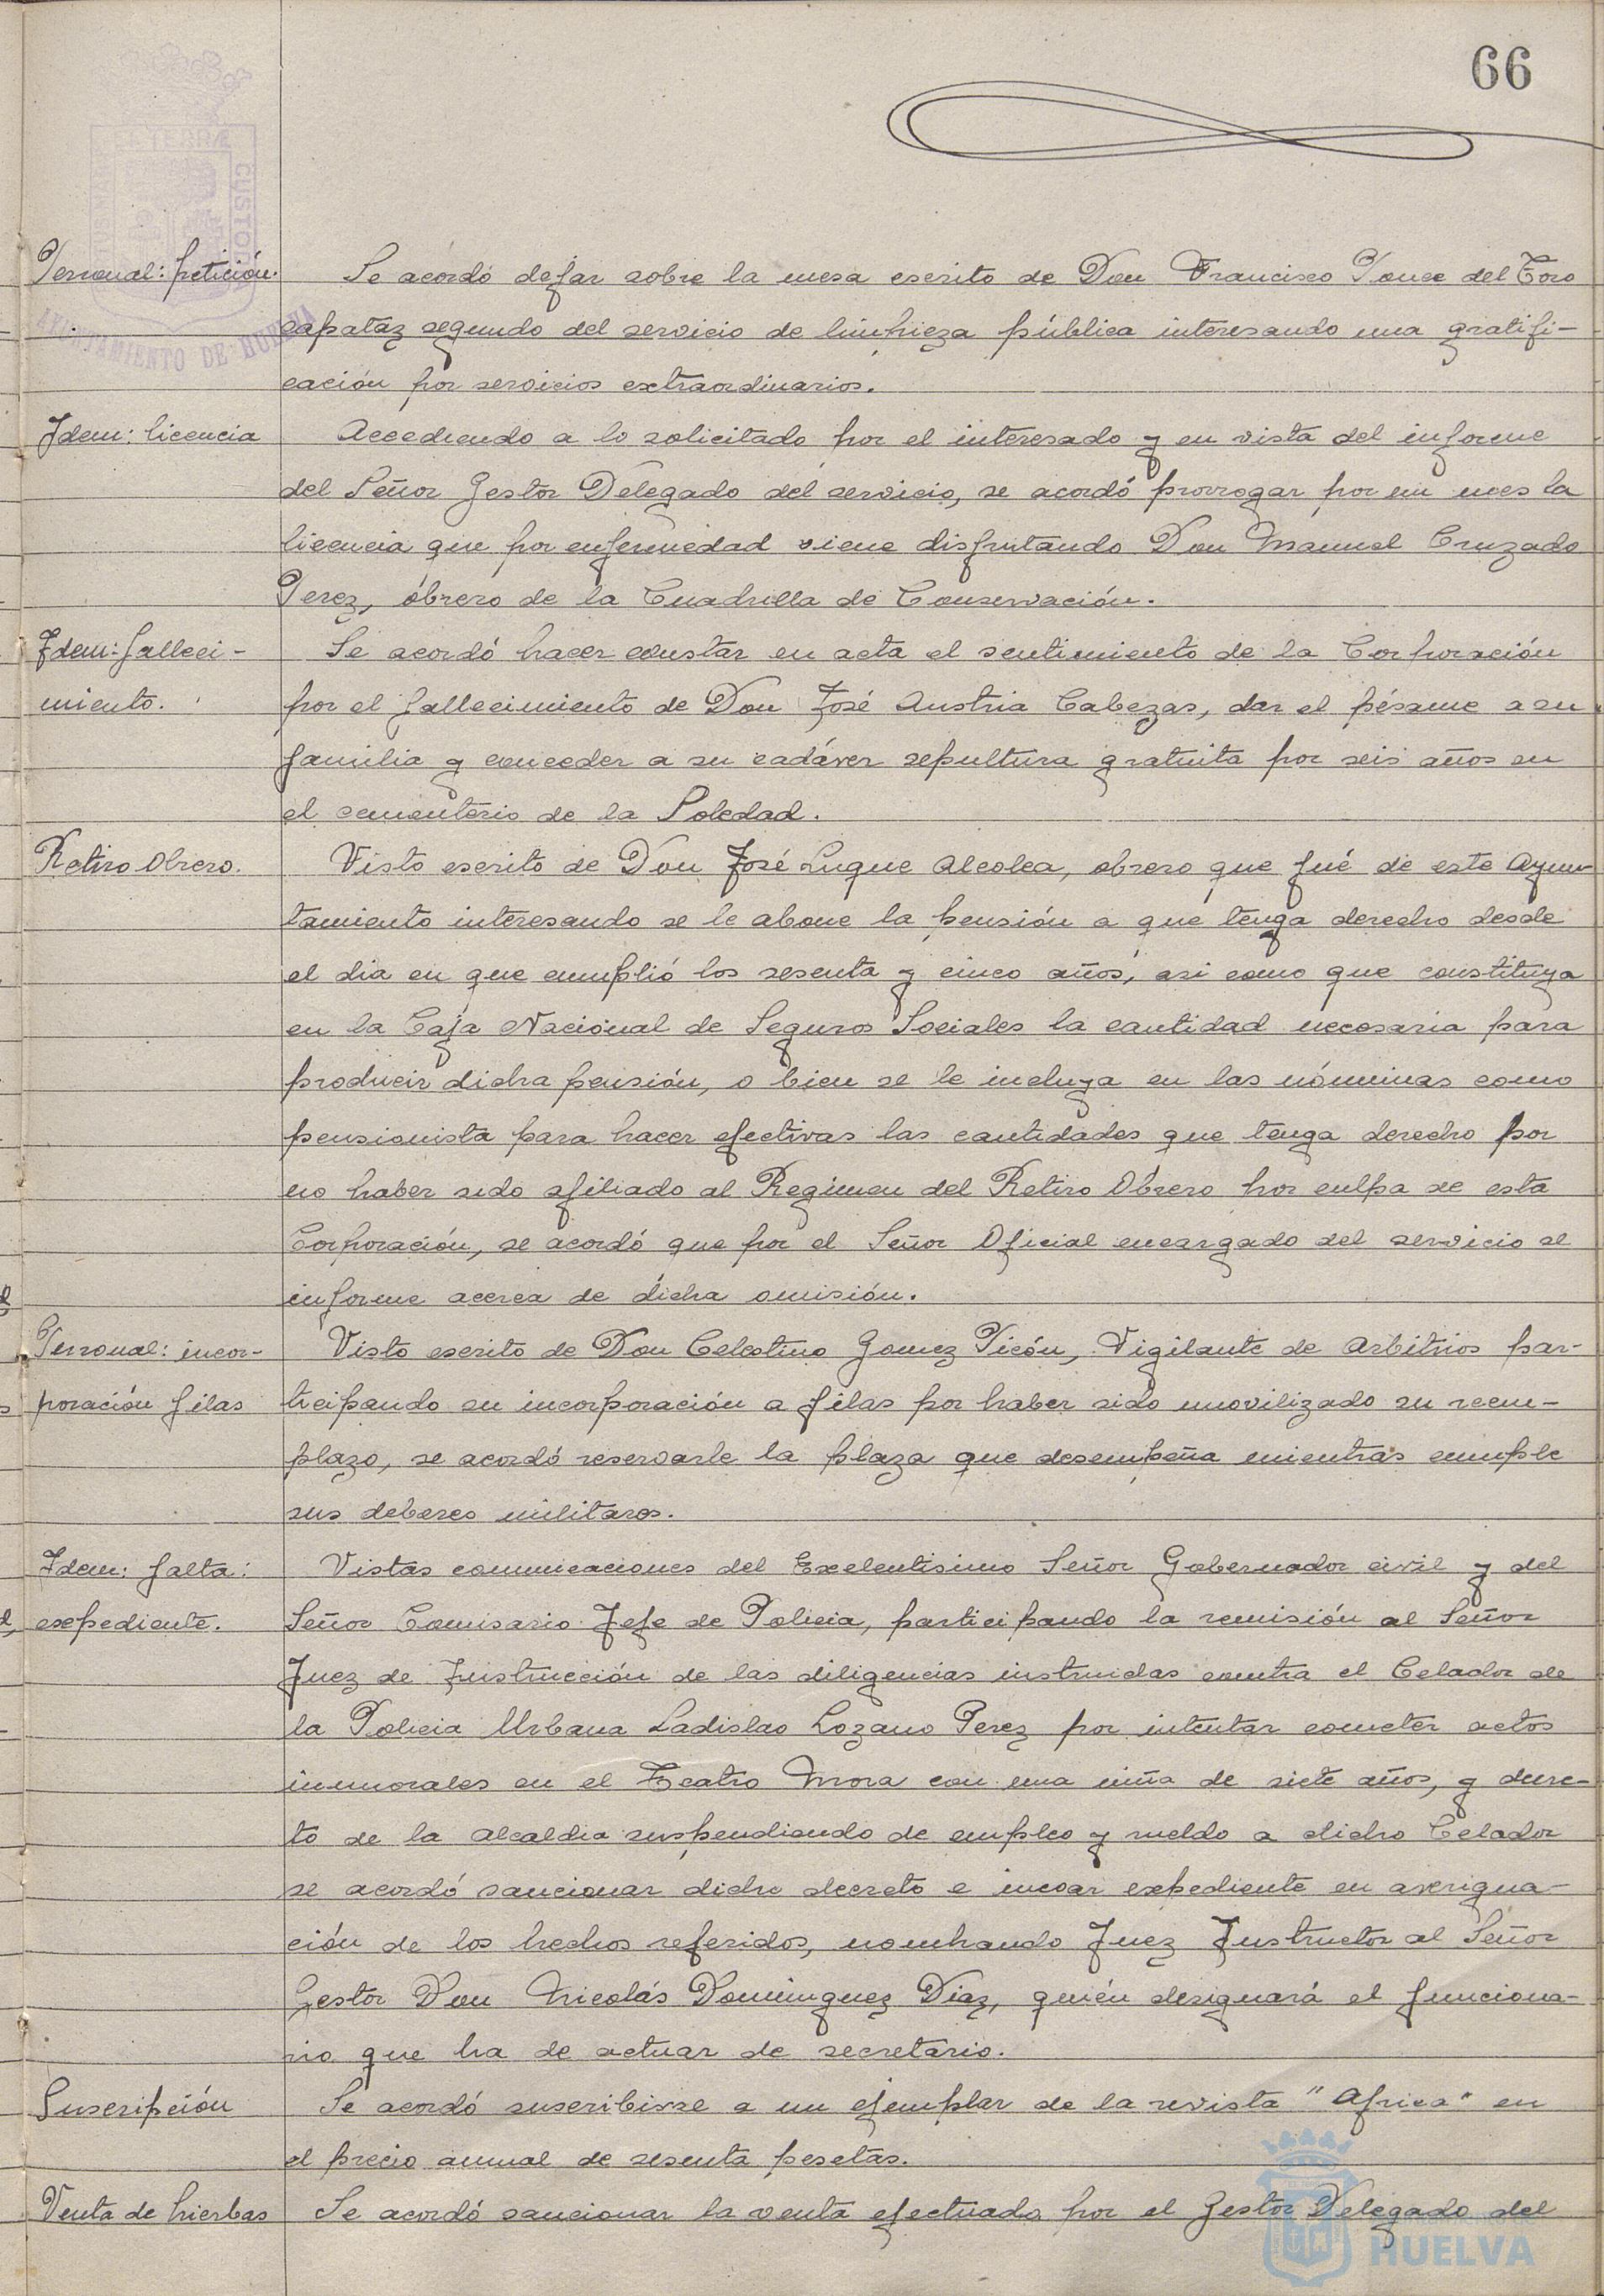 66
Personal: petición. Se acordó dejar sobre la mesa escrito de Don Francisco Ponce del Toro
capataz segundo del servicio de limpieza pública interesando una gratifi-
cación por servicios extraordinarios.
Idem: licencia Accediendo a lo solicitado por el interesado y en vista del informe
del Señor Gestor Delegado del servicio, se acordó prorrogar por un mes la
licencia que por enfermedad viene disfrutando Don Manuel Cruzado
Perez, obrero de la Cuadrilla de Conservación.
Idem: falleci- Se acordó hacer constar en acta el sentimiento de la Corporación
miento. por el fallecimiento de Don José Austria Cabezas, dar el pésame a su
familia y conceder a su cadáver sepultura gratuita por seis años en
el cementerio de la Soledad.
Retiro Obrero. Visto escrito de Don José Luque Alcolea, obrero que fué de este Ayun-
tamiento interesando se le abone la pensión a que tenga derecho desde
el dia en que cumplió los sesenta y cinco años, asi como que constituya
en la Caja Nacional de Seguros Sociales la cantidad necesaria para
producir dicha pensión, o bien se le incluya en las nóminas como
pensionista para hacer efectivas las cantidades que tenga derecho por
no haber sido afiliado al Regimen del Retiro Obrero por culpa de esta
Corporación, se acordó que por el Señor Oficial encargado del servicio se
informe acerca de dicha omisión.
Personal: incor- Visto escrito de Don Celestino Gomez Picón, Vigilante de Arbitrios par-
poración filas ticipando su incorporación a filas por haber sido movilizado su reem-
plazo, se acordó reservarle la plaza que desempeña mientras cumple
sus deberes militares.
Idem: falta: Vistas comunicaciones del Exelentisimo Señor Gobernador civil y del
expediente. Señor Comisario Jefe de Policia, participando la remisión al Señor
Juez de Instrucción de las diligencias instruidas contra el Celador de
la Policia Urbana Ladislao Lozano Perez por intentar cometer actos
inmorales en el Teatro Mora con una niña de siete años, y decre-
to de la Alcaldia suspendiendo de empleo y sueldo a dicho Celador
se acordó sancionar dicho decreto e incoar expediente en averigua-
ción de los hechos referidos, nombrando Juez Instructor al Señor
Gestor Don Nicolás Dominguez Diaz, quién designará el funciona-
rio que ha de actuar de secretario.
Suscripción Se acordó suscribirse a un ejemplar de la revista "Africa" en
el precio anual de sesenta pesetas.
Venta de hierbas Se acordó sancionar la venta efectuada por el Gestor Delegado del
AYUNTAMIENTO DE HUELVA
HUELVA